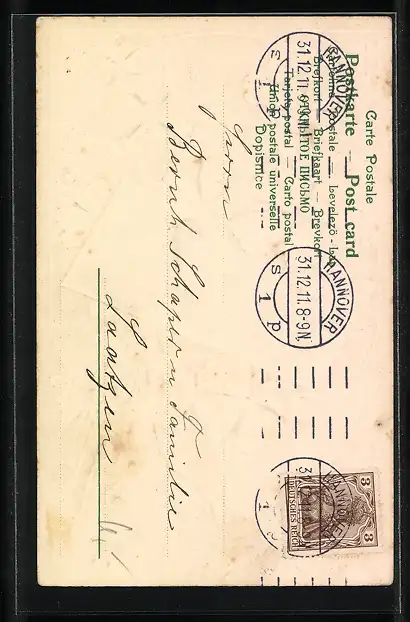 Carte Postale
Postkarte — Post card
Cartolina postale — Levelező-lap
Brefkort — Briefkaart — Brevkort
ОТКРЫТОЕ ПИСЬМО
Tarjeta postal — Carto postal
Union postale universelle
Dopisnice
HANNOVER
31.12.11.8-9N.
S 1 p
HANNOVER
31.12.11.8-9N.
S 1 p
HANNOVER
1
3 3
DEUTSCHES REICH
Herrn
Bernh. Schaper u Familie
Laatzen